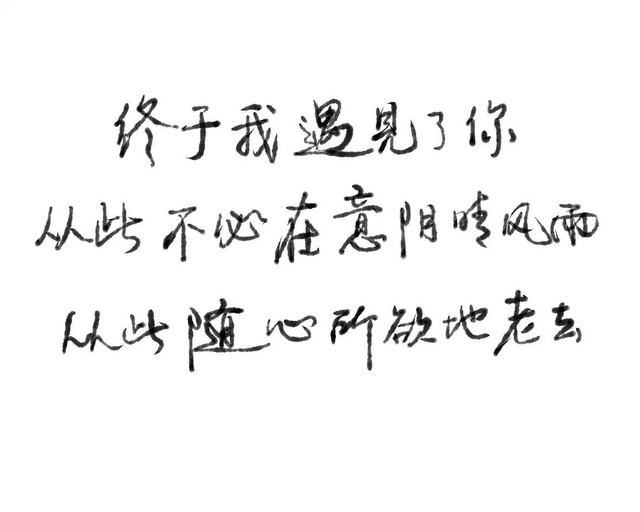 终于我遇见了你
从此不必在意阴晴风雨
从此随心所欲地老去